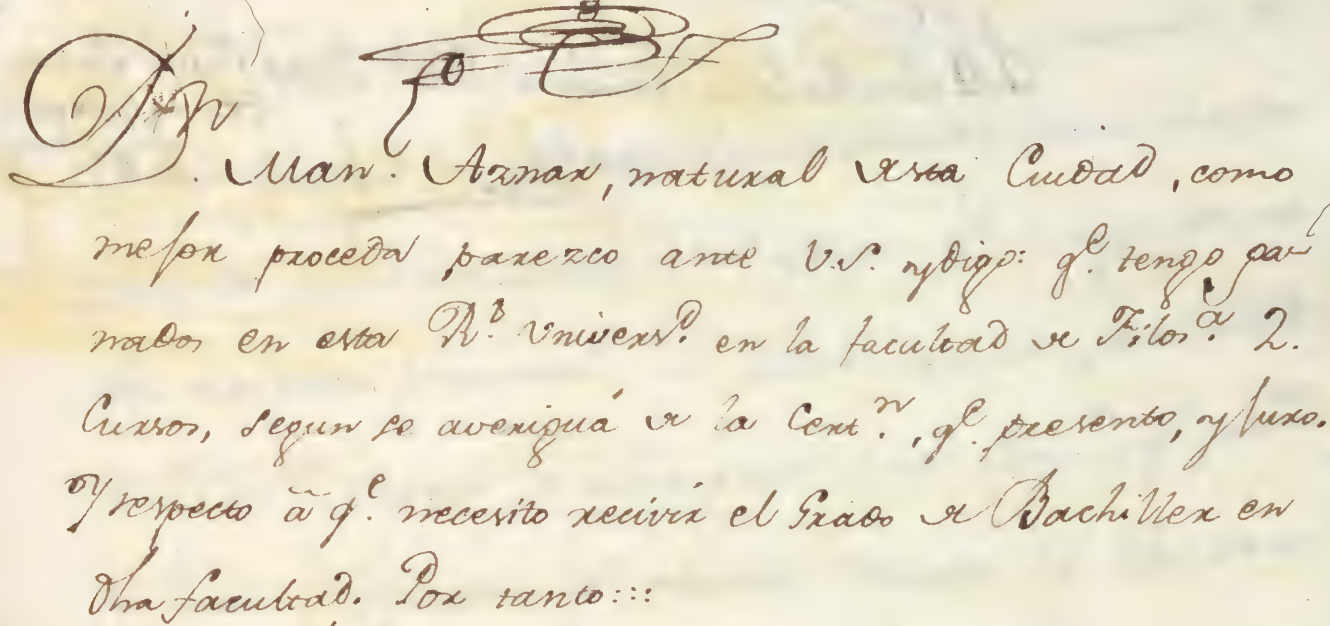 Dn. Man. Aznar, natural de esta Ciudad, como
mejor proceda parezco ante V.S. y digo: qe. tengo ga-
nados en esta Rl. Universd. en la facultad de Filosa. 2.
Cursos, segun se averiguá de la Certn., qe. presento, y juro.
Y respecto ã qe. necesito recivir el Grado de Bachiller en
dha facultad. Por tanto:::